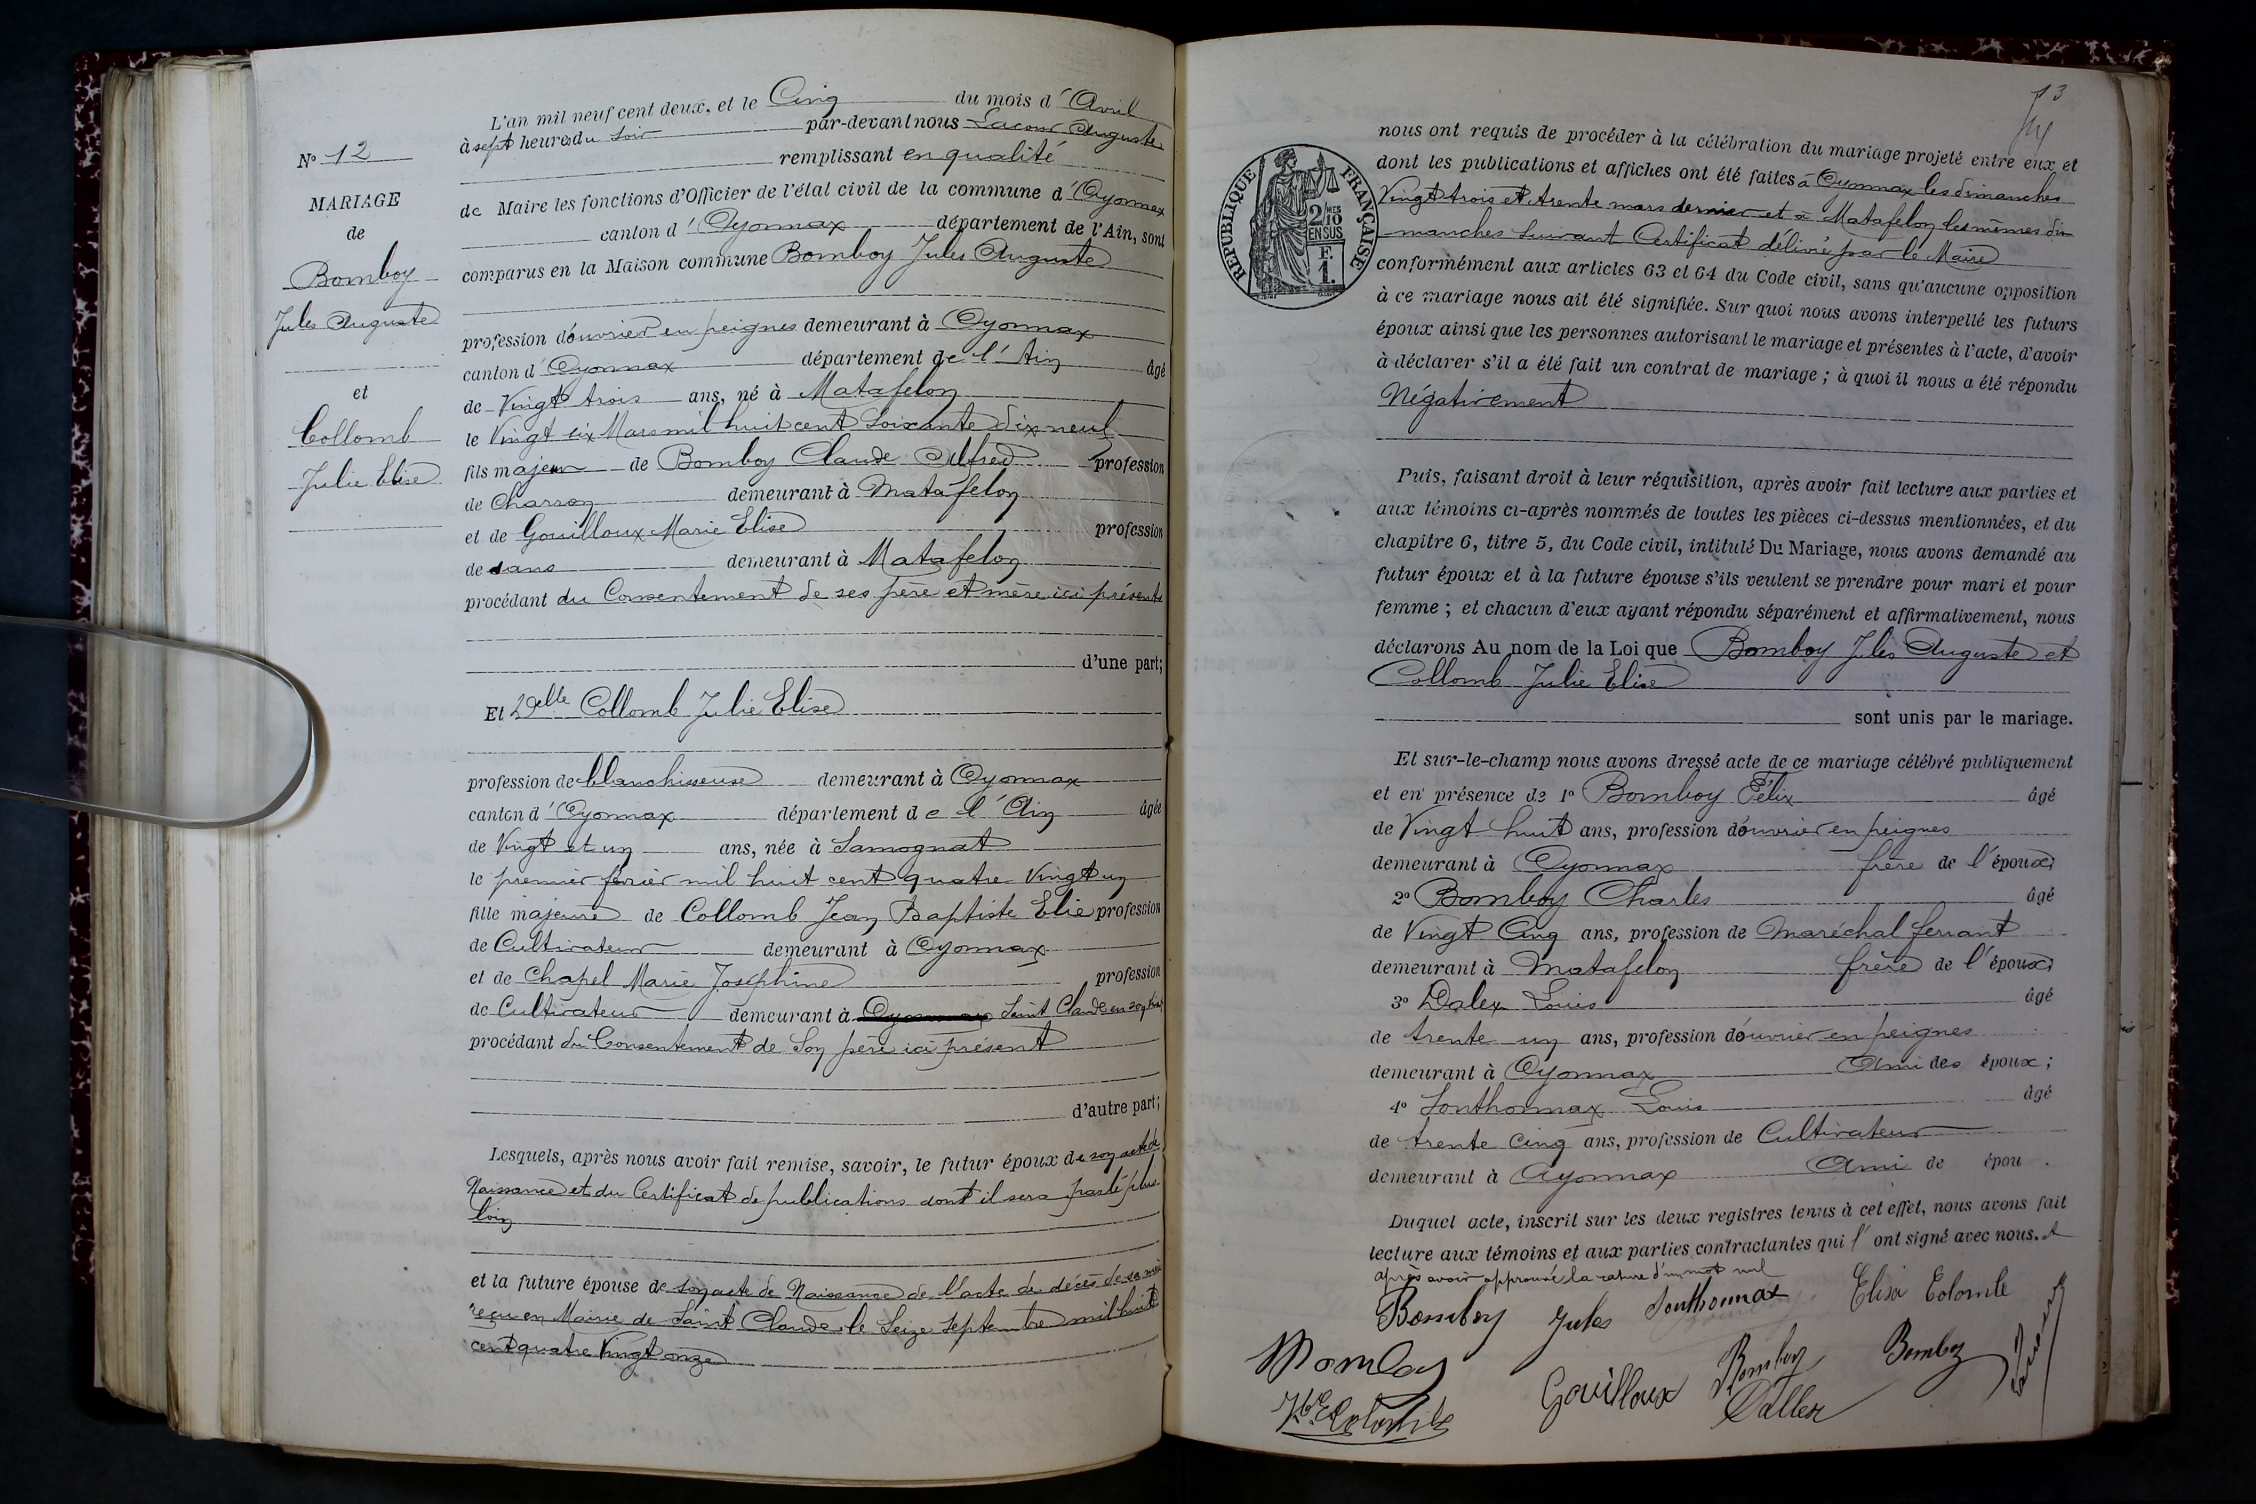 L'an mil neuf cent deux, et le Cinq du mois d'Avril
à sept heures du soir par-devant nous Lacour Auguste
remplissant en qualité
de Maire les fonctions d'Officier de l'état civil de la commune d'Oyonnax
canton d'Oyonnax département de l'Ain, sont
comparus en la Maison commune Bomboy Jules Auguste
profession d'ouvrier en peignes demeurant à Oyonnax
canton d'Oyonnax département de l'Ain âgé
de Vingt trois ans, né à Matafelon
le Vingt six Mars mil huit cent Soixante dix neuf
fils majeur de Bomboy Claude Alfred profession
de Charron demeurant à Matafelon
et de Gouilloux Marie Elise profession
de sans demeurant à Matafelon
procédant du Consentement de ses père et mère ici présents
d'une part;
Et Delle Collomb Julie Elise
profession de blanchisseuse demeurant à Oyonnax
canton d'Oyonnax département de l'Ain âgée
de Vingt et un ans, née à Samognat
le premier février mil huit cent quatre Vingt un
fille majeure de Collomb Jean Baptiste Elie profession
de Cultivateur demeurant à Oyonnax
et de Chapel Marie Joséphine profession
de Cultivateur demeurant à Oyonnax Saint Claude en son vivant
procédant du Consentement de son père ici présent
d'autre part;
Lesquels, après nous avoir fait remise, savoir, le futur époux de son acte de
Naissance et du Certificat de publications dont il sera parlé plus
loin
et la future épouse de son acte de Naissance de l'acte de décès de sa mère
reçu en Mairie de Saint Claude le Seize Septembre mil huit
cent quatre Vingt onze
No 12
MARIAGE
de
Bomboy
Jules Auguste
et
Collomb
Julie Elise
13
RÉPUBLIQUE FRANÇAISE
2/10 MES
EN SUS
F.
1.
nous ont requis de procéder à la célébration du mariage projeté entre eux et
dont les publications et affiches ont été faites à Oyonnax les dimanches
Vingt trois et trente mars dernier et à Matafelon les mêmes di
manches suivant Certificat délivré par le Maire
conformément aux articles 63 et 64 du Code civil, sans qu'aucune opposition
à ce mariage nous ait été signifiée. Sur quoi nous avons interpellé les futurs
époux ainsi que les personnes autorisant le mariage et présentes à l'acte, d'avoir
à déclarer s'il a été fait un contrat de mariage; à quoi il nous a été répondu
Négativement
Puis, faisant droit à leur réquisition, après avoir fait lecture aux parties et
aux témoins ci-après nommés de toutes les pièces ci-dessus mentionnées, et du
chapitre 6, titre 5, du Code civil, intitulé Du Mariage, nous avons demandé au
futur époux et à la future épouse s'ils veulent se prendre pour mari et pour
femme; et chacun d'eux ayant répondu séparément et affirmativement, nous
déclarons Au nom de la Loi que Bomboy Jules Auguste et
Collomb Julie Elise
sont unis par le mariage.
Et sur-le-champ nous avons dressé acte de ce mariage célébré publiquement
et en présence de 1o Bomboy Félix âgé
de Vingt huit ans, profession d'ouvrier en peignes
demeurant à Oyonnax frère de l'époux;
2o Bomboy Charles âgé
de Vingt Cinq ans, profession de Maréchal ferrant
demeurant à Matafelon frère de l'époux;
3o Dalex Louis âgé
de trente un ans, profession d'ouvrier en peignes
demeurant à Oyonnax Ami des époux;
4o Sonthonnax Louis âgé
de trente cinq ans, profession de Cultivateur
demeurant à Oyonnax Ami de épou .
Duquel acte, inscrit sur les deux registres tenus à cet effet, nous avons fait
lecture aux témoins et aux parties contractantes qui l'ont signé avec nous. et
après avoir approuvé la rature d'un mot nul
Bomboy Jules Sonthonnax Elisa Colomb
Bomboy
Gouilloux Bomboy Bomboy
Dallex